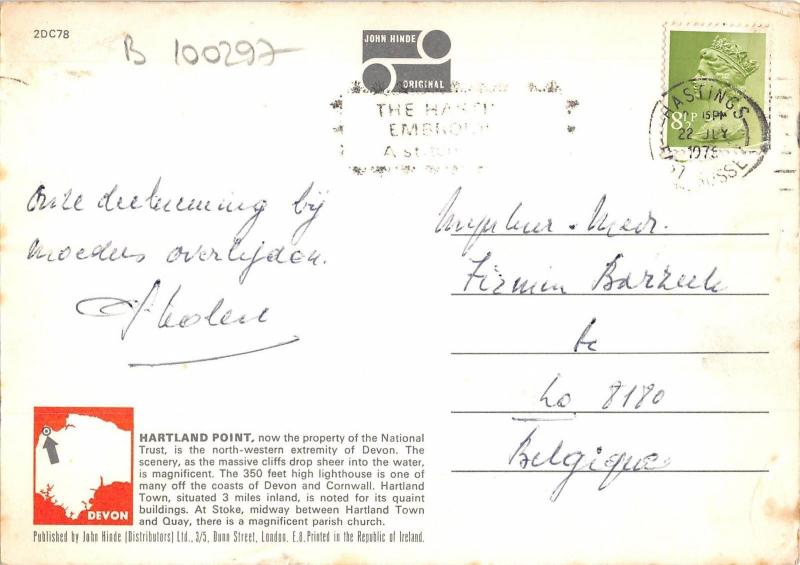 2DC78
B 100297
JOHN HINDE
ORIGINAL
THE HAST
EMBROI
A st
8½P
HASTINGS
15PM
22 JLY
197
EAST SUSSEX
Onze deelneming bij
moeders overlijden.
Mijnheer - Mevr.
Firmin
te
Lo 8180
Belgique
HARTLAND POINT, now the property of the National
Trust, is the north-western extremity of Devon. The
scenery, as the massive cliffs drop sheer into the water,
is magnificent. The 350 feet high lighthouse is one of
many off the coasts of Devon and Cornwall. Hartland
Town, situated 3 miles inland, is noted for its quaint
buildings. At Stoke, midway between Hartland Town
and Quay, there is a magnificent parish church.
DEVON
Published by John Hinde (Distributors) Ltd., 3/5, Dunn Street, London, E.8. Printed in the Republic of Ireland.